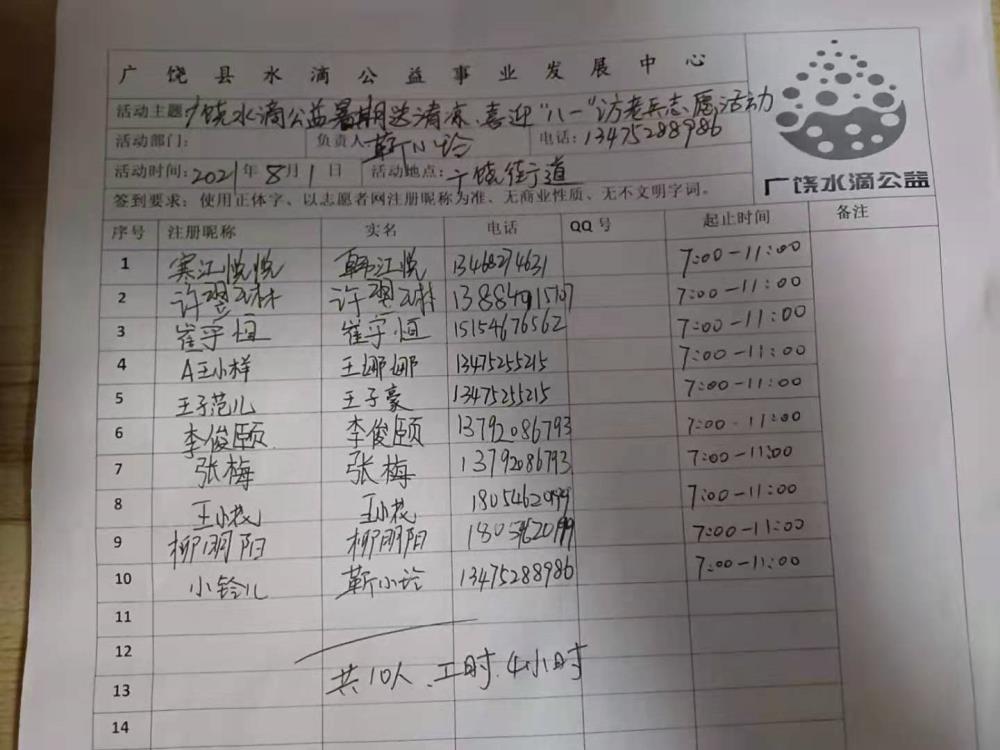 广饶县水滴公益事业发展中心
活动主题:广饶水滴公益暑期送清凉、喜迎“八一”访老兵志愿活动
活动部门: 负责人 靳小玲 电话:13475288986
活动时间:2021年8月1日 活动地点:广饶街道
广饶水滴公益
签到要求:使用正体字、以志愿者网注册昵称为准、无商业性质、无不文明字词。
序号 注册昵称 实名 电话 QQ号 起止时间 备注
1 寒江悦悦 韩江悦 13468274631 7:00-11:00
2 许翌琳 许翌琳 7:00-11:00
3 崔宇恒 崔宇恒 15154676562 7:00-11:00
4 A王小样 王娜娜 13475255215 7:00-11:00
5 王子范儿 王子豪 13475255215 7:00-11:00
6 李俊颐 李俊颐 13792086793 7:00-11:00
7 张梅 张梅 13792086793 7:00-11:00
8 王小花 王小花 7:00-11:00
9 柳明阳 柳明阳 7:00-11:00
10 小铃儿 靳小玲 13475288986 7:00-11:00
11
12
13 共10人、工时、4小时
14